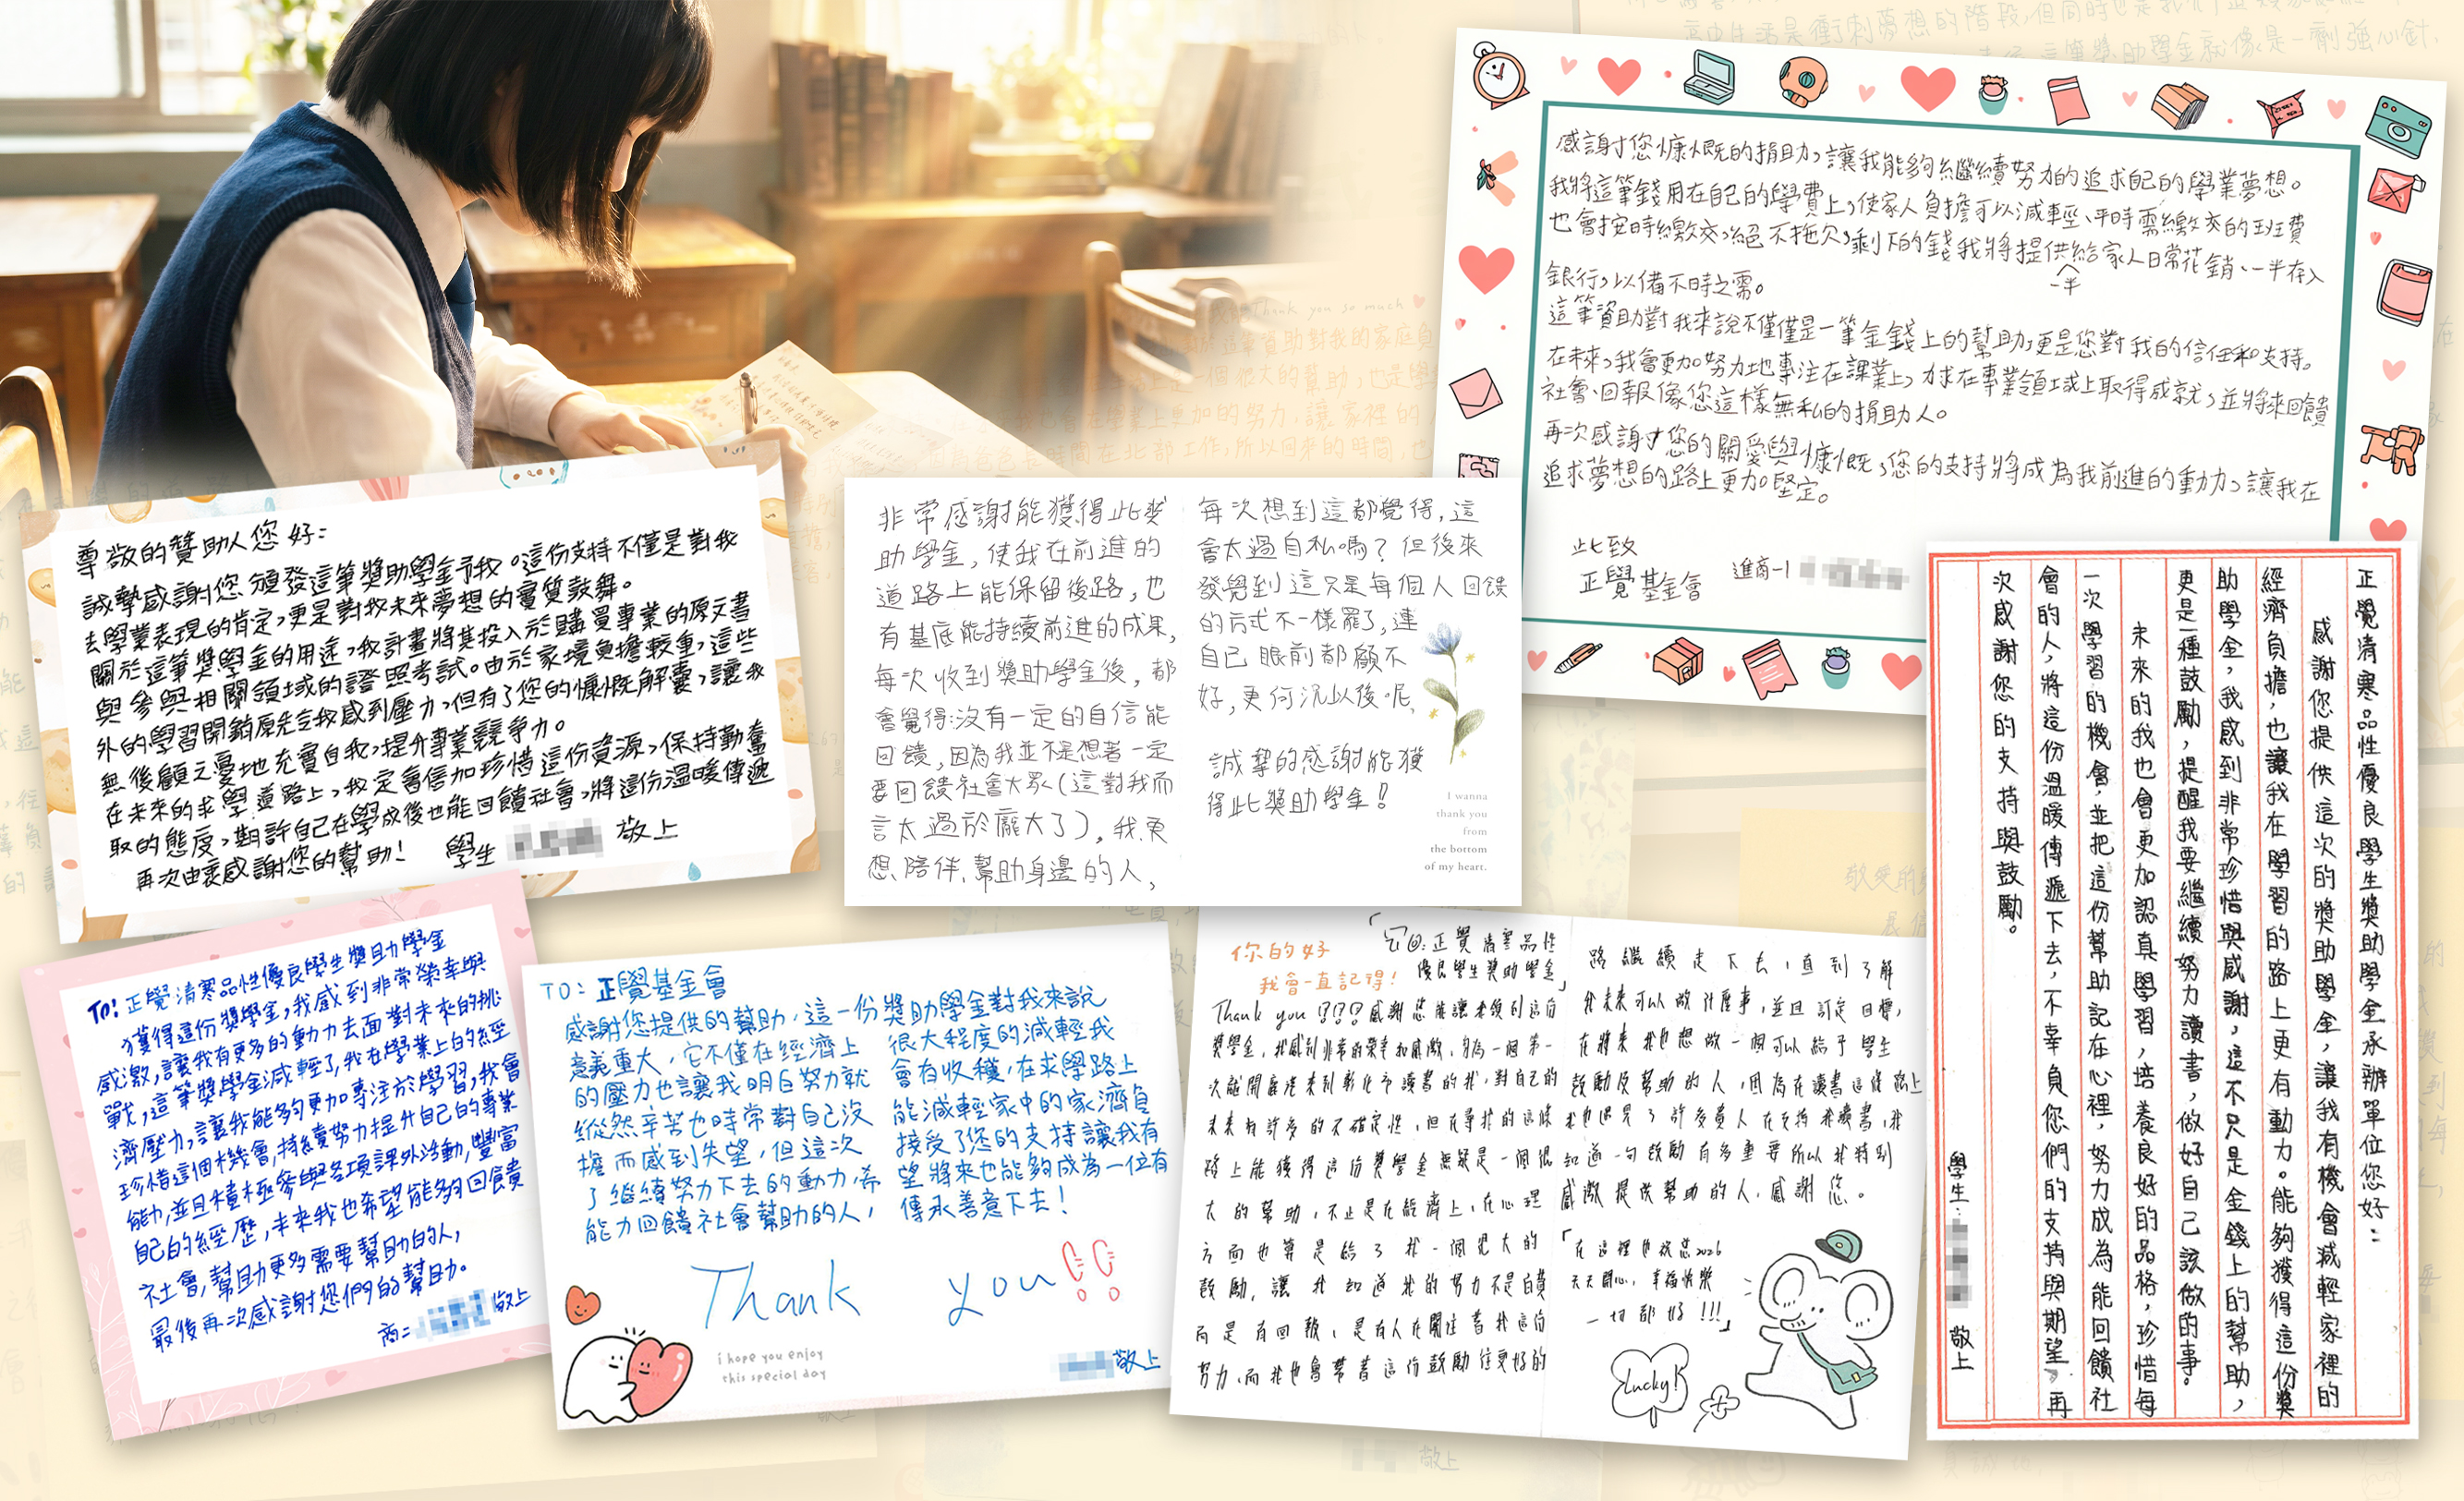 感謝您慷慨的捐助,讓我能夠繼續努力的追求自己的學業夢想。
我將這筆錢用在自己的學費上,使家人負擔可以減輕、平時需繳交的班費
也會按時繳交,絕不拖欠,剩下的錢我將提供給家人日常花銷、一半存入
一半
銀行,以備不時之需。
這筆資助對我來說不僅僅是一筆金錢上的幫助,更是您對我的信任和支持。
在未來,我會更加努力地專注在課業上,力求在事業領域上取得成就,並將來回饋
社會、回報像您這樣無私的捐助人。
再次感謝您的關愛與慷慨,您的支持將成為我前進的動力,讓我在
追求夢想的路上更加堅定。
此致
正覺基金會
進商一1
尊敬的贊助人您好:
誠摯感謝您頒發這筆獎助學金予我。這份支持不僅是對我
去學業表現的肯定,更是對我未來夢想的實質鼓舞。
關於這筆獎學金的用途,我計畫將其投入於購買專業的原文書
與參與相關領域的證照考試。由於家境負擔較重,這些
外的學習開銷原先令我感到壓力,但有了您的慷慨解囊,讓我
無後顧之憂地充實自我,提升專業競爭力。
在未來的求學道路上,我定會倍加珍惜這份資源,保持勤奮
取的態度,期許自己在學成後也能回饋社會,將這份溫暖傳遞
再次由衷感謝您的幫助!
學生 敬上
非常感謝能獲得此獎
助學金,使我在前進的
道路上能保留後路,也
有基底能持續前進的成果,
每次收到獎助學金後,都
會覺得:沒有一定的自信能
回饋,因為我並不是想著一定
要回饋社會大眾(這對我而
言太過於龐大了),我更
想陪伴、幫助身邊的人,
每次想到這都覺得,這
會太過自私嗎?但後來
發覺到這只是每個人回饋
的方式不一樣罷了,連
自己眼前都顧不
好,更何況以後呢,
誠摯的感謝能獲
得此獎助學金!
I wanna
thank you
from
the bottom
of my heart.
正覺清寒品性優良學生獎助學金承辦單位您好:
感謝您提供這次的獎助學金,讓我有機會減輕家裡的
經濟負擔,也讓我在學習的路上更有動力。能夠獲得這份獎
助學金,我感到非常珍惜與感謝,這不只是金錢上的幫助,
更是一種鼓勵,提醒我要繼續努力讀書,做好自己該做的事。
未來的我也會更加認真學習,培養良好的品格,珍惜每
一次學習的機會,並把這份幫助記在心裡,努力成為能回饋社
會的人,將這份溫暖傳遞下去,不辜負您們的支持與期望,再
次感謝您的支持與鼓勵。
學生: 敬上
TO:正覺清寒品性優良學生獎助學金
獲得這份獎學金,我感到非常榮幸與
感激,讓我有更多的動力去面對未來的挑
戰,這筆獎學金減輕了我在學業上的經
濟壓力,讓我能夠更加專注於學習,我會
珍惜這個機會,持續努力提升自己的專業
能力,並且積極參與各項課外活動,豐富
自己的經歷,未來我也希望能夠回饋
社會,幫助更多需要幫助的人,
最後再次感謝您們的幫助。
商二 敬上
TO:正覺基金會
感謝您提供的幫助,這一份獎助學金對我來說
意義重大,它不僅在經濟上 很大程度的減輕我
的壓力也讓我明白努力就 會有收穫,在求學路上
縱然辛苦也時常對自己沒 能減輕家中的家濟負
擔而感到失望,但這次 接受了您的支持讓我有
了繼續努力下去的動力,希 望將來也能夠成為一位有
能力回饋社會幫助的人, 傳承善意下去!
Thank you!!
i hope you enjoy
this special day
敬上
你的好
我會一直記得!
正覺清寒品性
優良學生獎助學金」
Thank you!?!?!?感謝您能讓我領到這份
獎學金,我感到非常的榮幸和感激,身為一個第一
次離開庭港來到彰化市讀書的我,對自己的
未來有許多的不確定性,但在尋找的這條
路上能獲得這份獎學金無疑是一個很
大的幫助,不止是在經濟上,在心理
方面也算是給了我一個很大的
鼓勵,讓我知道我的努力不是白費
而是有回報,是有人在關注著我這份
努力,而我也會帶著這份鼓勵往更好的
路繼續走下去,直到了解
我未來可以做什麼事,並且訂定目標,
在將來我也想做一個可以給予學生
鼓勵及幫助的人,因為在讀書這條路上
我也遇見了許多貴人在支持我讀書,我
知道一句鼓勵有多重要所以我特別
感激提供幫助的人,感謝您。
「在這裡也祝您2026
天天開心,幸福快樂
一切都好!!!」
Lucky!